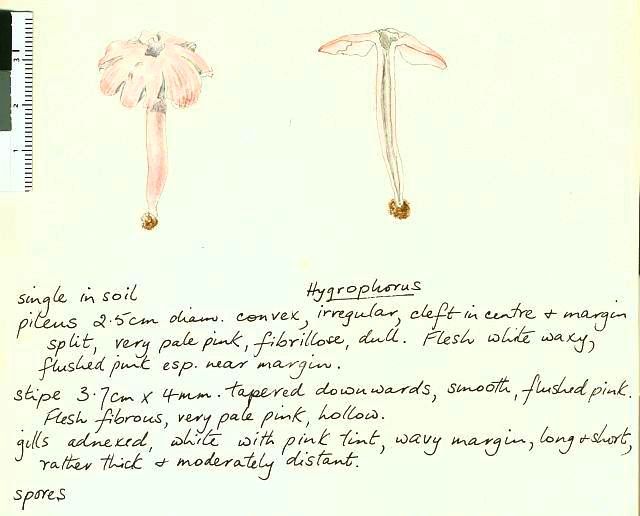 3
2
1
single in soil
Hygrophorus
pileus 2.5cm diam. convex, irregular, cleft in centre & margin
split, very pale pink, fibrillose, dull. Flesh white waxy,
flushed pink esp. near margin.
stipe 3.7cm x 4mm. tapered downwards, smooth, flushed pink.
Flesh fibrous, very pale pink, hollow.
gills adnexed, white with pink tint, wavy margin, long & short,
rather thick & moderately distant.
spores